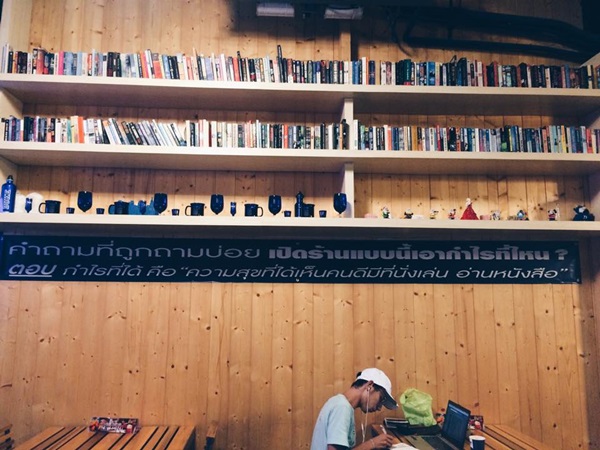 คำถามที่ถูกถามบ่อย เปิดร้านแบบนี้เอากำไรที่ไหน ?
ตอบ กำไรที่ได้ คือ "ความสุขที่ได้เห็นคนดีมีที่นั่งเล่น อ่านหนังสือ"